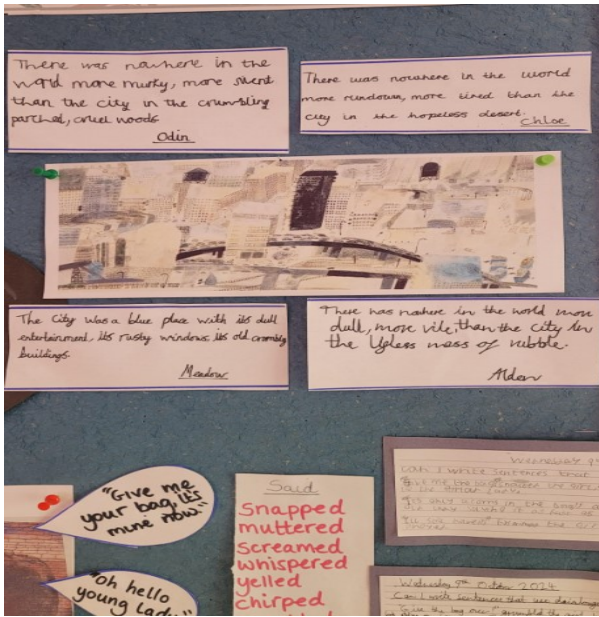 There was nowhere in the
world more murky, more silent
than the city in the crumbling
parched, cruel woods
Odin
There was nowhere in the world
more rundown, more tired than the
city in the hopeless desert.
Chloe
The City was a blue place with its dull
entertainment, its rusty windows, its old crombly
buildings
Meadow
There was nowhere in the world more
dull, more vile, than the city in
the mass of rubble.
Alden
"Give me
your bag, It's
mine now."
"oh hello
young lady"
Said
Snapped
muttered
screamed
whispered
yelled
chirped
Wednesday 9
Can I write sentences that
Wednesday 9th October 2024
Can I write sentences that use dialogue